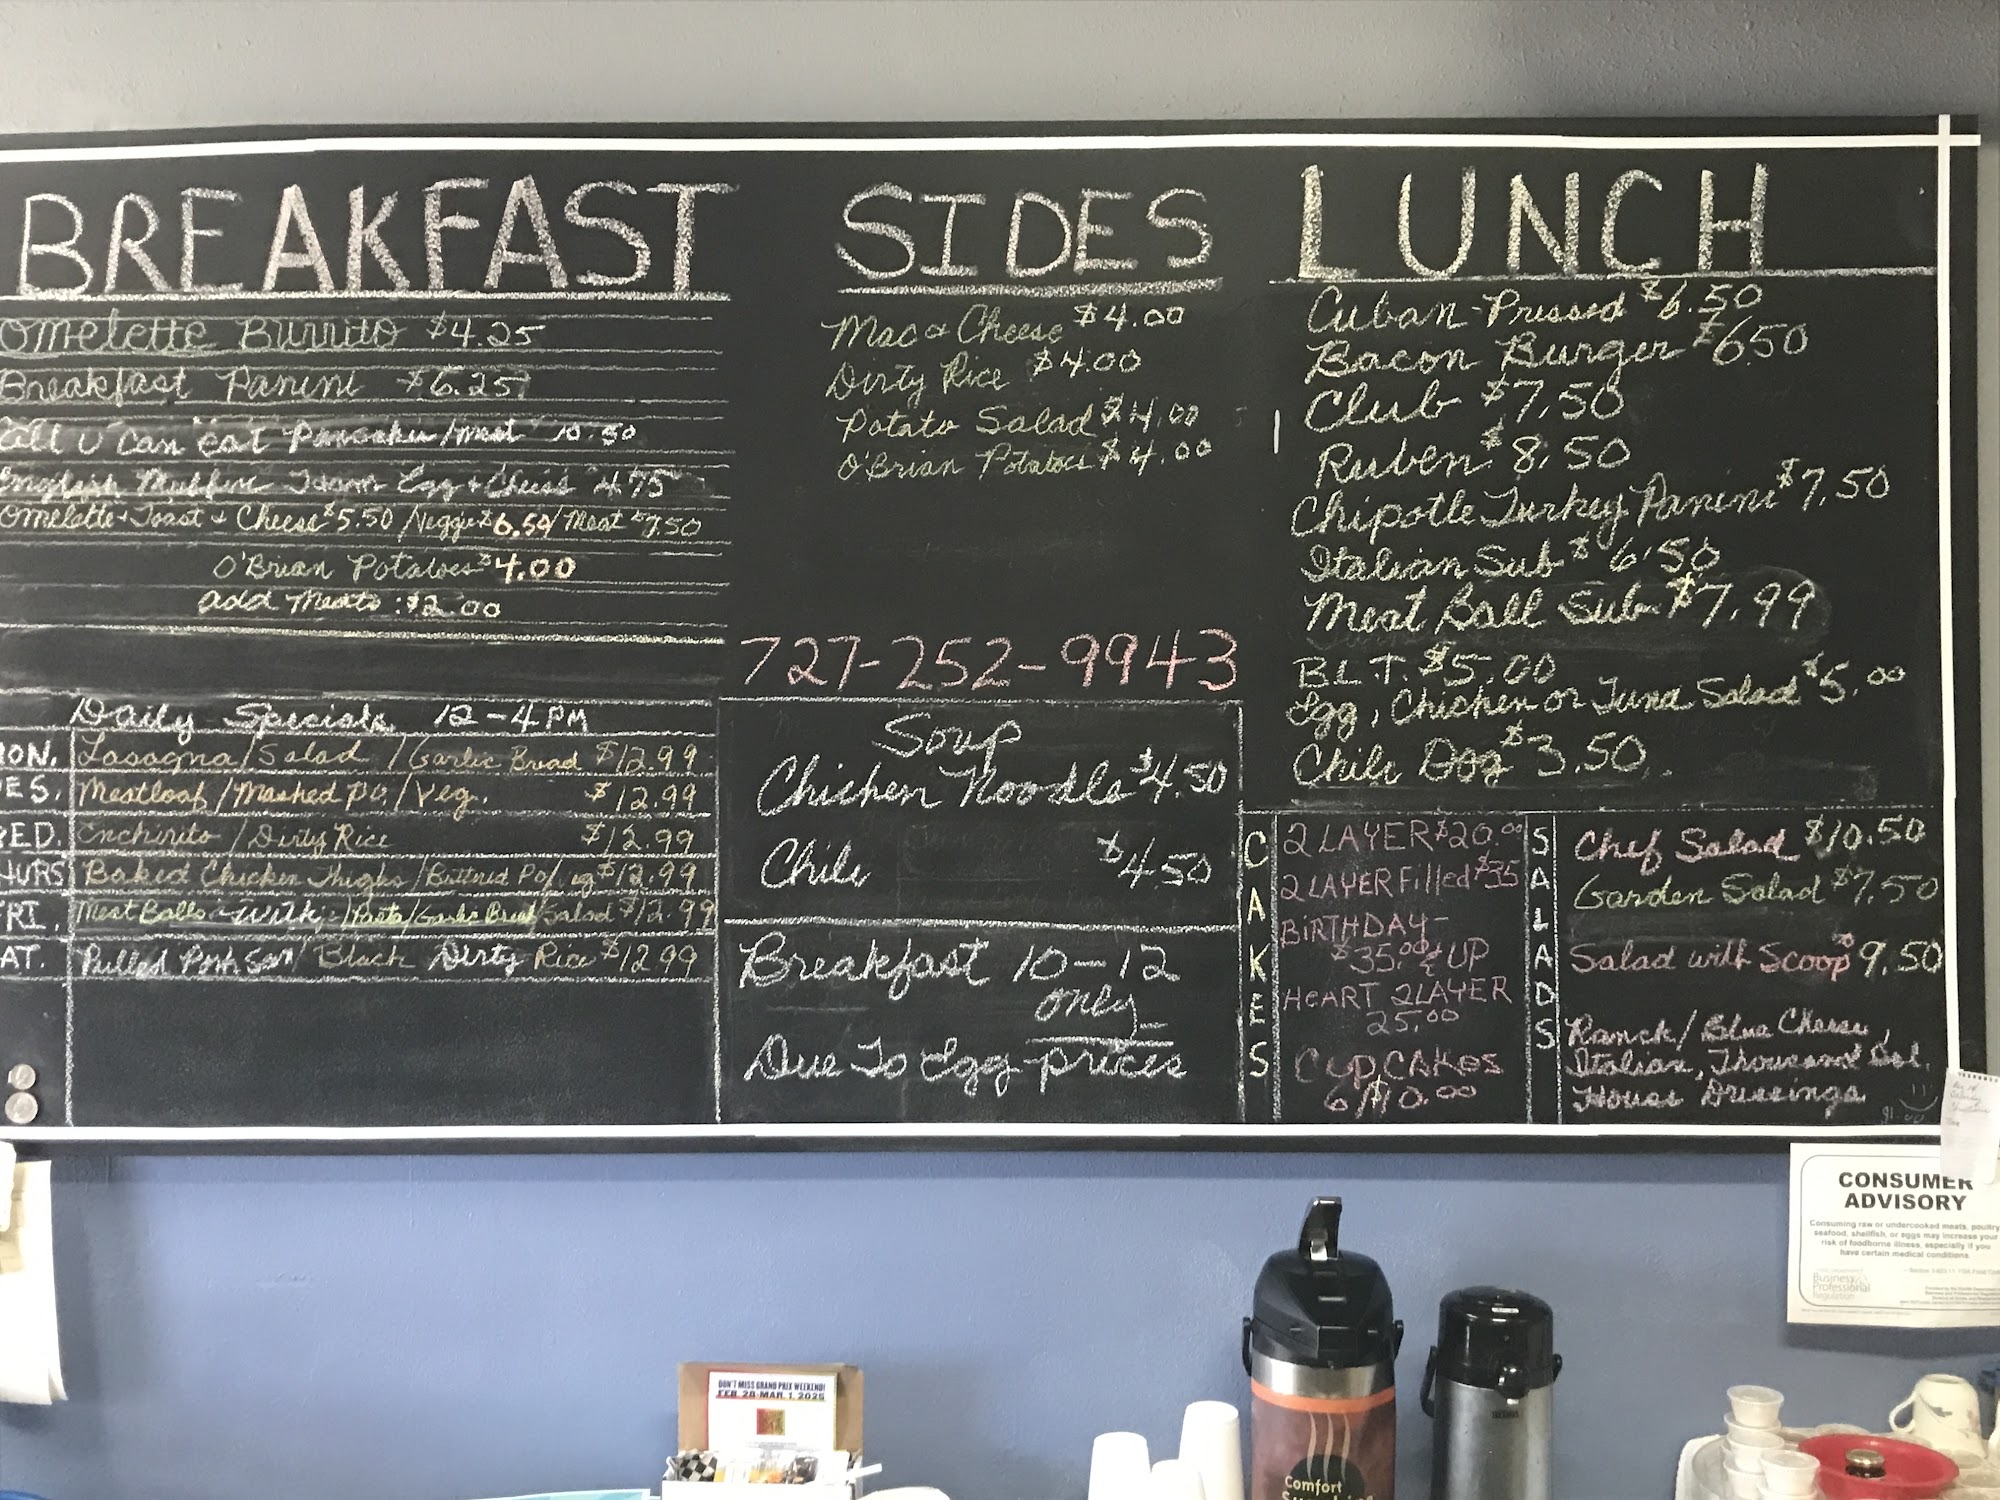 BREAKFAST
Omelette Burrito $4.25
Breakfast Panini $6.25
All U Can Eat Pancakes/meat 10.50
English Muffin Egg + Cheese 4.75
Omelette + Toast + Cheese $5.50 /Veggie $6.50/Meat $7.50
O'Brian Potatoes $4.00
add Meats: $2.00
Daily Specials 12-4PM
ON. Lasagna/Salad /Garlic Bread $12.99
ES. Meatloaf/Mashed Po./Veg. $12.99
ED. Enchirito/Dirty Rice $12.99
HURS Baked Chicken Thighs/Buttered Po/ $12.99
RI. Meat Balls with /Pasta/Garlic Bread/Salad $12.99
AT. Pulled Pork San/Black Dirty Rice $12.99
SIDES
Mac & Cheese $4.00
Dirty Rice $4.00
Potato Salad $4.00
O'Brian Potatoes $4.00
727-252-9943
Soup
Chicken Noodle $4.50
Chili $4.50
Breakfast 10-12
only
Due To Egg prices
LUNCH
Cuban-Pressed $6.50
Bacon Burger $650
Club $7.50
Ruben $8.50
Chipotle Turkey Panini $7.50
Italian Sub $6.50
Meat Ball Sub $7.99
B.L.T. $5.00
Egg, Chicken or Tuna Salad $5.00
Chili Dog $3.50
CAKES
2 LAYER $20.00
2 LAYER Filled $35
BIRTHDAY-
$35.00 & UP
HEART 2LAYER
25.00
CUPCAKES
6/$10.00
SALADS
Chef Salad $10.50
Garden Salad $7.50
Salad with Scoop 9.50
Ranch/Blue Cheese,
Italian, Thousand Isl.
House Dressings
CONSUMER
ADVISORY
Consuming raw or undercooked meats, poultry
seafood, shellfish, or eggs may increase your
risk of foodborne illness, especially if you
have certain medical conditions.
Business
Professional
Regulation
DON'T MISS GRAND PRIX WEEKEND!
FEB. 28-MAR. 1, 2025
Comfort
THERMOS